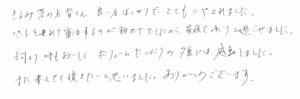 きるみ荘の皆さん 良い方ばかりで、とてもいやされました。
ペットを連れて宿泊するのが初めてでしたが、家族でゆったり過ごせました。
何より、味もおいしく、ボリュームたっぷりの夕食には、感動しました。
また来させて頂きたいと思いました。ありがとうございます。